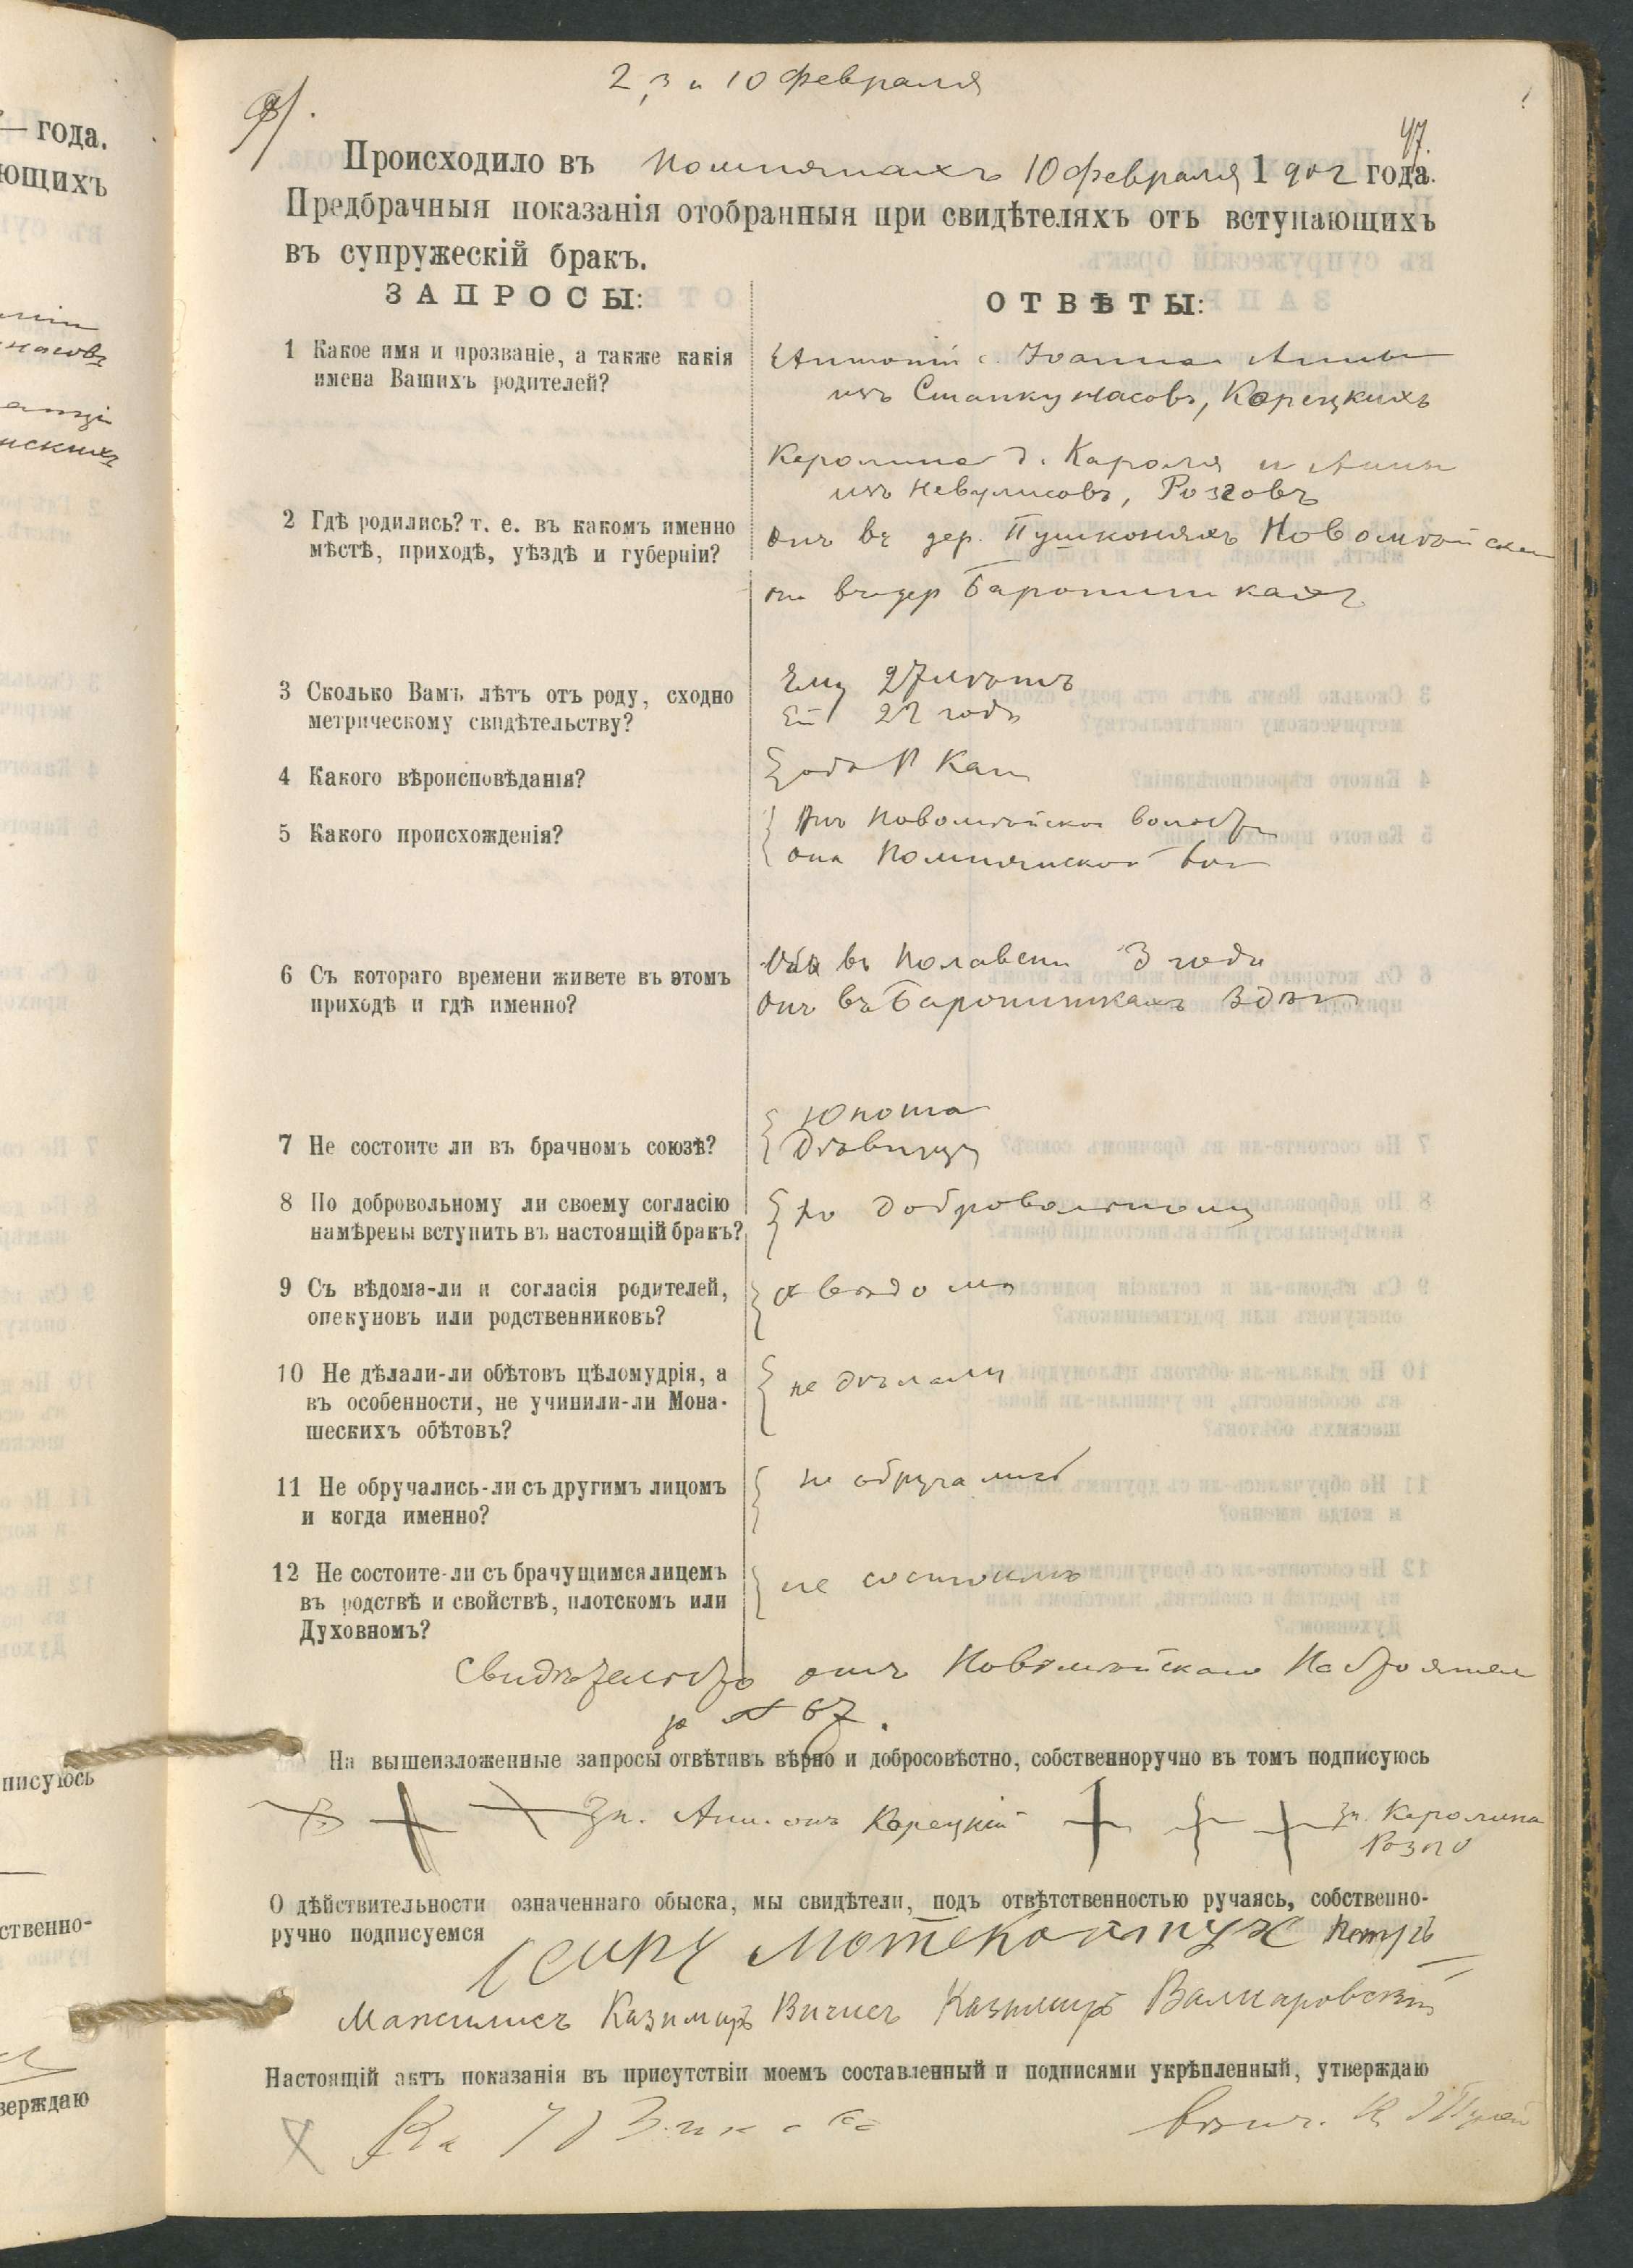 2, 3 и 10 Февраля
47.
Происходило въ Помпянахъ 10 Февраля 1902 года.
Предбрачныя показанія отобранныя при свидѣтеляхъ отъ вступающихъ
въ супружескій бракъ.
ЗАПРОСЫ:
ОТВѢТЫ:
1 Какое имя и прозваніе, а также какія
имена Вашихъ родителей?
Антоній с. Іоанна Анны
изъ Станкунасовъ, Корецкихъ
Каролина д. Кароля и Анны
изъ Невулисовъ, Розговъ
2 Гдѣ родились? т. е. въ какомъ именно
мѣстѣ, приходѣ, уѣздѣ и губерніи?
онъ въ дер. Пушконяхъ
она въ дер Баронишкахъ
3 Сколько Вамъ лѣтъ отъ роду, сходно
метрическому свидѣтельству?
Ему 27 лѣтъ
Ей 22 года
4 Какого вѣроисповѣданія?
оба Р Кат
5 Какого происхожденія?
Онъ Новомѣйской волости
она Помпянской вол
6 Съ котораго времени живете въ этомъ
приходѣ и гдѣ именно?
въ 3 года
онъ въ Баронишкахъ здѣ
7 Не состоите ли въ брачномъ союзѣ?
Юноша
Дѣвица
8 По добровольному ли своему согласію
намѣрены вступить въ настоящій бракъ?
по добровольному
9 Съ вѣдома-ли и согласія родителей,
опекуновъ или родственниковъ?
съ вѣдома
10 Не дѣлали-ли обѣтовъ цѣломудрія, а
въ особенности, не учинили-ли Мона-
шескихъ обѣтовъ?
не дѣлали
11 Не обручались-ли съ другимъ лицомъ
и когда именно?
не обручались
12 Не состоите-ли съ брачущимся лицемъ
въ родствѣ и свойствѣ, плотскомъ или
Духовномъ?
не состоимъ
Свидѣтельство отъ Новомѣйскаго Настоятеля
за № 67.
На вышеизложенные запросы отвѣтивъ вѣрно и добросовѣстно, собственноручно въ томъ подписуюсь
Зн. Антонъ Корецкій Зн. Каролина
Розго
О дѣйствительности означеннаго обыска, мы свидѣтели, подъ отвѣтственностью ручаясь, собственно-
ручно подписуемся
Петръ
Казимиръ Казимиръ
Настоящій актъ показанія въ присутствіи моемъ составленный и подписями укрѣпленный, утверждаю